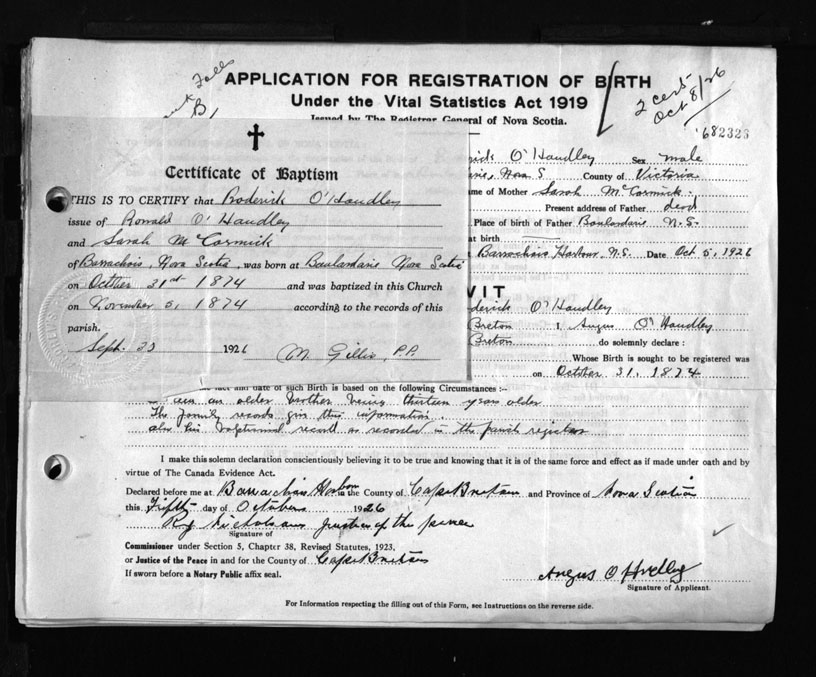 Falls
B,
APPLICATION FOR REGISTRATION OF BIRTH
Under the Vital Statistics Act 1919
Issued by The Registrar General of Nova Scotia.
2 cert
Oct 8/26
682323
Certificate of Baptism
THIS IS TO CERTIFY that Roderick O'Handley
issue of Ronald O'Handley
and Sarah McCormick
of Barrachois, Nova Scotia, was born at Boulardarie Nova Scotia
on October 31st 1874 and was baptized in this Church
on November 5, 1874 according to the records of this
parish.
Sept. 23 1926 M Gillis, P.P.
rick O'Handley Sex male
arie, Nova S County of Victoria
me of Mother Sarah McCormick
Present address of Father dead
Place of birth of Father Boulardarie N.S.
at birth
Barrachois Harbour, N.S. Date Oct 5, 1926
VIT
derick O'Handley
Breton I, Angus O'Handley
Breton do solemnly declare :
Whose Birth is sought to be registered was
on October 31, 1874
fact and date of such Birth is based on the following Circumstances :—
am an older brother being thirteen years older
The family records give this information.
also his baptismal record as recorded in the parish register
I make this solemn declaration conscientiously believing it to be true and knowing that it is of the same force and effect as if made under oath and by
virtue of The Canada Evidence Act.
Declared before me at Barrachois Harbour in the County of Cape Breton and Province of Nova Scotia
this Fifth day of October 1926
Nicholson justice of the peace
Signature of
Commissioner under Section 5, Chapter 38, Revised Statutes, 1923,
or Justice of the Peace in and for the County of Cape Breton
If sworn before a Notary Public affix seal.
Angus O'Handley
Signature of Applicant.
For Information respecting the filling out of this Form, see Instructions on the reverse side.